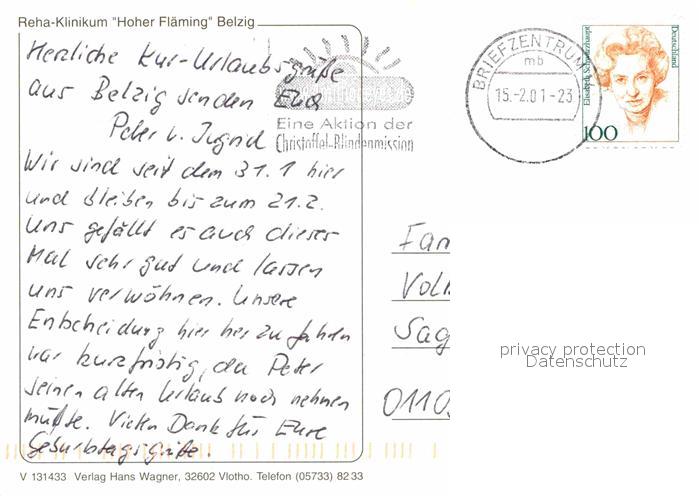 Reha-Klinikum "Hoher Fläming" Belzig
Herzliche Kur-Urlaubsgrüße
aus Belzig senden Euch
Peter u. Ingrid
Wir sind seit dem 31.1 hier
und bleiben bis zum 21.2.
Uns gefällt es auch dieses
Mal sehr gut und lassen
uns verwöhnen. Unsere
Entscheidung hier her zu fahren
war kurzfristig, da Peter
seinen alten Urlaub noch nehmen
mußte. Vielen Dank für Eure
Geburtstagsgrüße.
Eine Aktion der
Christoffel-Blindenmission
BRIEFZENTRUM
mb
15.-2.01-23
Deutschland
100
Fam
Volk
Sag
0110
privacy protection
Datenschutz
V 131433 Verlag Hans Wagner, 32602 Vlotho. Telefon (05733) 82 33